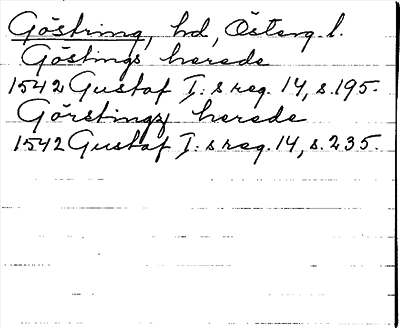 Göstring, hd, Österg. l.
Göstings herede
1542 Gustaf I:s reg. 14, s. 195.
Görstings herede
1542 Gustaf I:s reg. 14, s. 235.